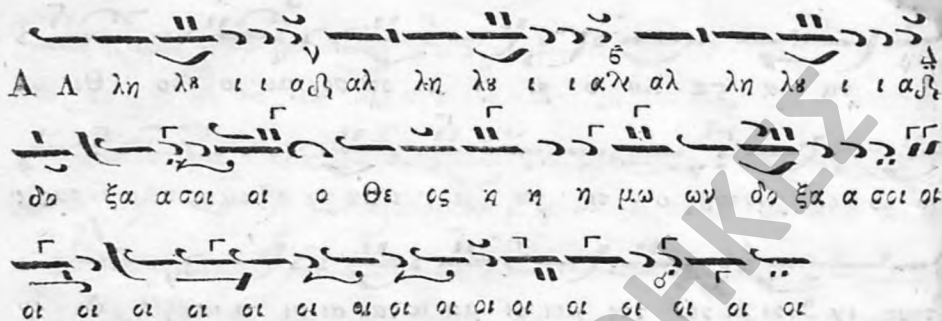 Α Λ λη λȣ ι ι α αλ λη λȣ ι ι α αλ λη λȣ ι ι α
δο ξα α σοι οι ο Θε ος η η η μω ων δο ξα α σοι οι
οι οι οι οι οι οι οι οι οι οι οι οι οι οι οι
ΘΗΚΕΣ